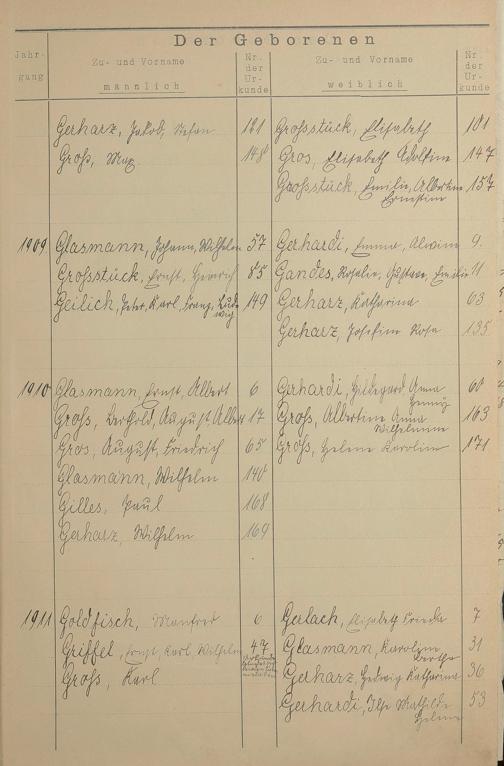 Der Geborenen
Jahr-
gang
Zu- und Vorname
männlich
Nr.
der
Ur-
kunde
Zu- und Vorname
weiblich
Nr.
der
Ur-
kunde
Gerharz, Jakob, Stefan 121 Grosstück, Elisabeth 101
Groß, Max 148 Gros, Elisabeth Adolfine 147
Grosstück, Emilie, Albertine 157
Ernestine
1909 Glasmann, Johann, Wilhelm 57 Gerhardi, Emma, Alwine 9.
Grosstück, Ernst, Heinrich 85 Gandes, Rosalie, Emilie 11
Geilich, Peter, Karl, Franz, Lud- 149 Gerharz, Katharina 63
wig
Gerharz, Josefine Rosa 135
1910 Glasmann, Ernst, Albert 6 Gerhardi, Hildegard Anna 60
Henny
Groß, Berthold, August, Albert 17 Groß, Albertine Anna 163
Wilhelmine
Gros, August, Friedrich 65 Groß, Helene Karoline 171
Glasmann, Wilhelm 140
Gilles, Paul 168
Gerharz, Wilhelm 169
1911 Goldfisch, Manfred 6 Gerlach, Elisabeth Frieda 7
Griffel, Ernst, Karl Wilhelm 47 Glasmann, Karoline 31
Bertha
Groß, Karl Gerharz, Hedwig Katharina 36
Gerhardi, Ilse Mathilde 53
Helene